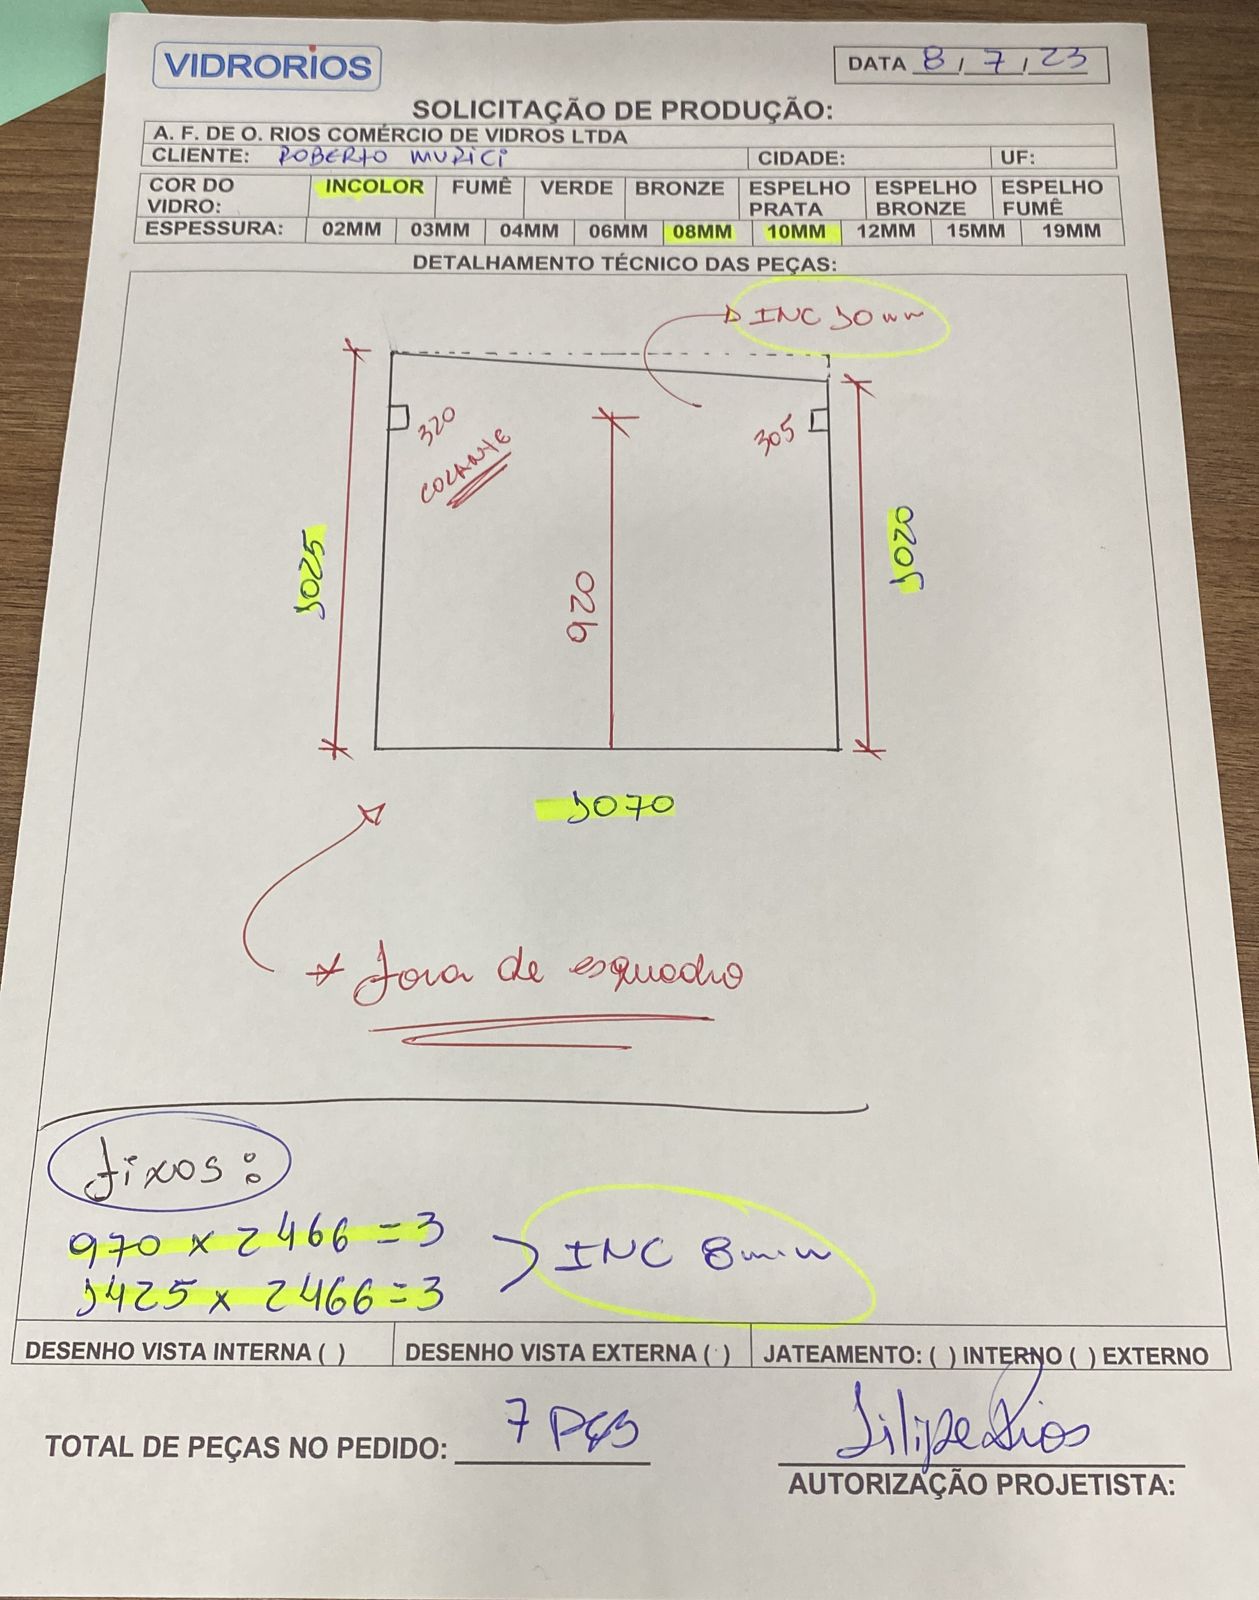 VIDRORIOS
DATA 8 / 7 / 23
SOLICITAÇÃO DE PRODUÇÃO:
A. F. DE O. RIOS COMÉRCIO DE VIDROS LTDA
CLIENTE: ROBERTO MURICI CIDADE: UF:
COR DO VIDRO: INCOLOR FUMÊ VERDE BRONZE ESPELHO PRATA ESPELHO BRONZE ESPELHO FUMÊ
ESPESSURA: 02MM 03MM 04MM 06MM 08MM 10MM 12MM 15MM 19MM
DETALHAMENTO TÉCNICO DAS PEÇAS:
INC 10mm
320
COLANTE
305
1025
920
1020
1070
* fora de esquadro
fixos:
970 x 2466 = 3
1425 x 2466 = 3
INC 8mm
DESENHO VISTA INTERNA ( ) DESENHO VISTA EXTERNA ( ) JATEAMENTO: ( ) INTERNO ( ) EXTERNO
TOTAL DE PEÇAS NO PEDIDO: 7 PÇS
Filipe Rios
AUTORIZAÇÃO PROJETISTA: